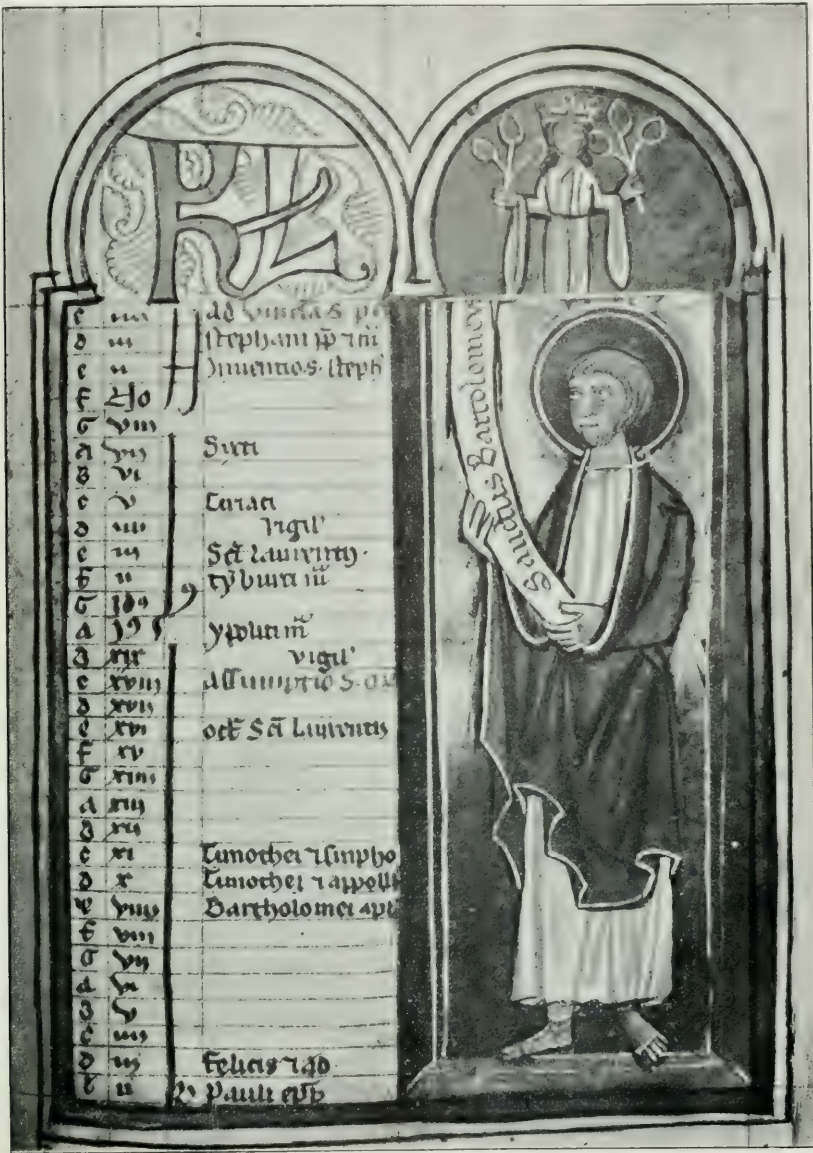 KL
c iiii ad vincla s. pe
d iii stephani pp
e ii Inventio s. steph
f No
G viii
A vii Sixti
B vi
c v Ciriaci
d iiii vigil'
e iii Sci Laurentii
f ii Tyburti m
G Id'
A ypoliti m
B xix vigil'
c xviii Assumptio s.
d xvii
e xvi oct Sci Laurentii
f xv
G xiiii
A xiii
B xii
c xi Timothei ⁊ simpho
d x Timothei ⁊ appolli
e viiii Bartholomei apl
f viii
G vii
A vi
B v
c iiii
d iii felicis ⁊ ad
e ii Pauli epi
Sanctus Bartolomeus